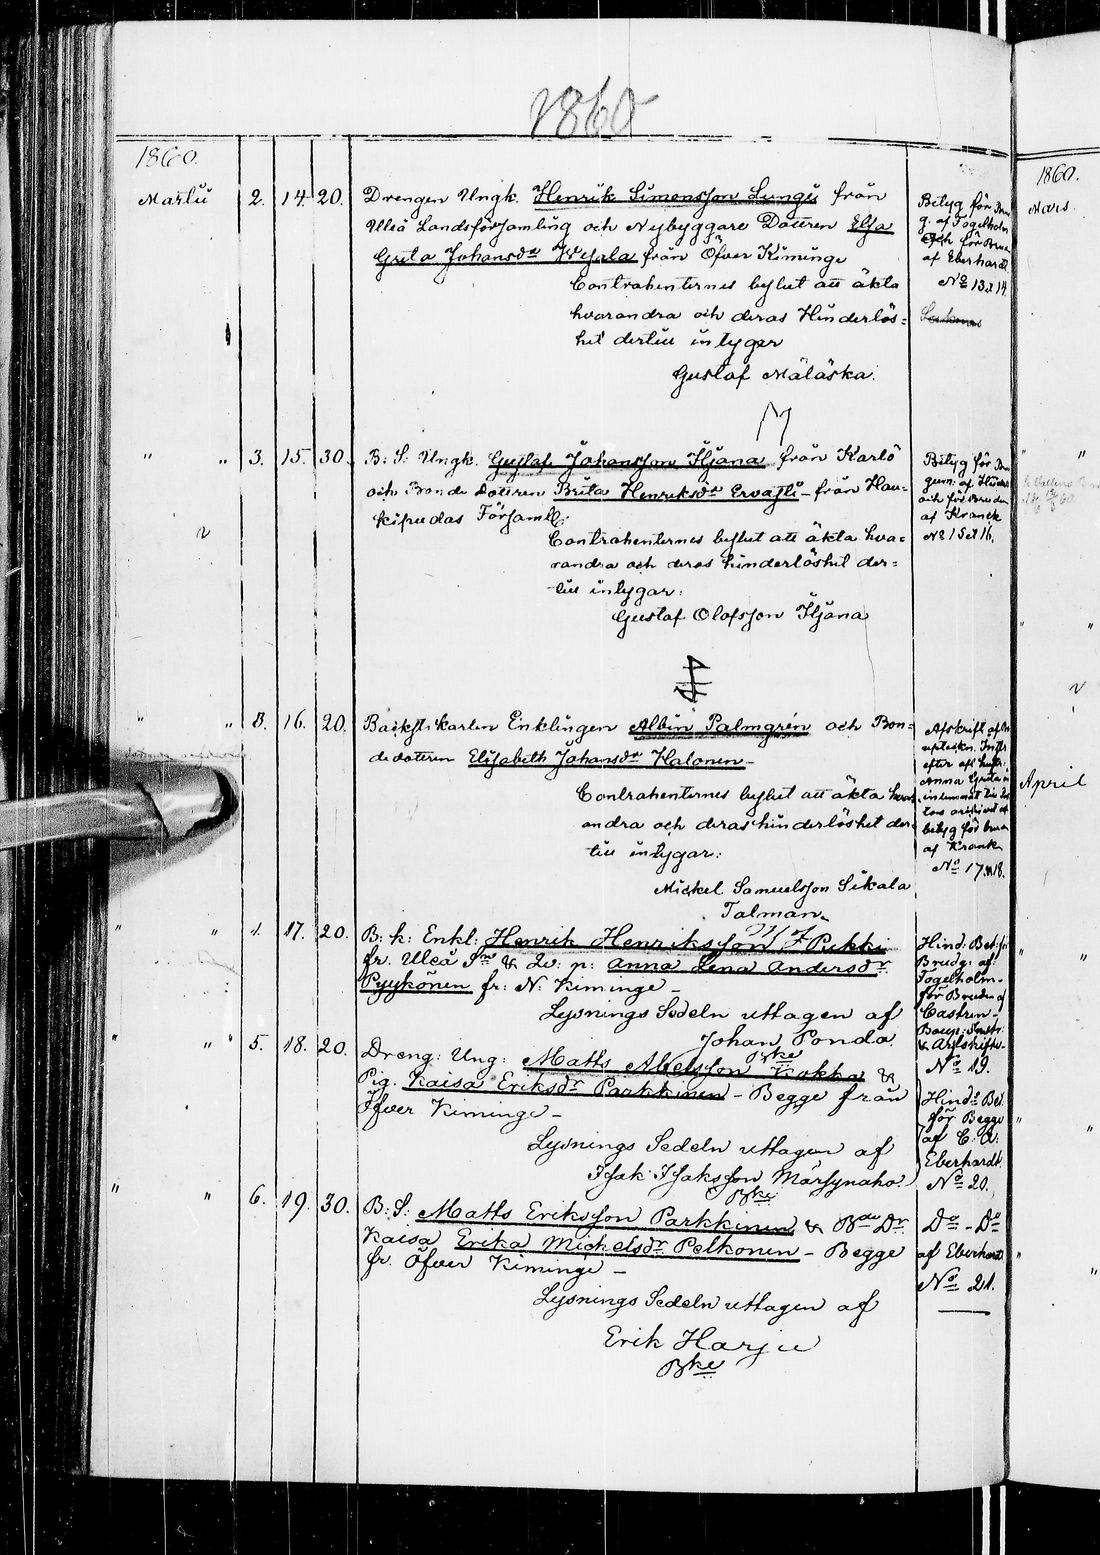 1860
1860.
Martii 2. 14. 20. Drengen Ungk. Henrik Simonsson Lungi från
Uleå Landsförsamling och Nybyggare Dottren Elsa
Greta Johansdr från Öfver Kiminge
Contrahenternes beslut att äkta
hvarandra och deras Hinderlös=
het dertill intyger
Gustaf Mäläska.
Betyg för
g: af Fogelholm
och för Brud
af Eberhardt
No 13 et 14.
" " 3. 15. 30. B: S: Ungk. Gustaf Johansson Iljana från Karlö
och Bonde dottren Brita Henriksdr Ervasti – från Hau-
kipudas Församl:
Contrahenternes beslut att äkta hva=
randra och deras hinderlöshet der=
till intygar:
Gustaf Olofsson Iljana
Betyg för
gum: af
och för Bruden
af Kranck
No 15 et 16.
" " 3. 16. 20. Enklingen Albin Palmgrén och Bon=
dedottren Elisabeth Johansdr Halonen –
Contrahenternes beslut att äkta hvar
andra och deras hinderlöshet der=
till intygar:
Mickel Samuelsson Sikala
Talman
Afskrift af
efter afl. hustr.
Anna Greta
betyg för
af Kranck
No 17 18.
" " 4. 17. 20. B: k: Enkl: Henrik Henriksson Pukki
fr. Uleå Sn & Anna Lena Andersdr
Pyykönen fr: N: Kiminge –
Lysnings Sedeln uttagen af
Johan Ponda
Bke
Hind: Bet: f:
Brudg: af
Fogelholm –
för Bruden af
Castrén –
No 19.
" " 5. 18. 20. Dreng: Ung: Matts Abelsson Kokko &
Pig. Kaisa Eriksdr Parkkinen – Begge från
Öfver Kiminge –
Lysnings Sedeln uttagen af
Isak Isaksson Märsynaho.
Bke
Hinds Bet
för Begge
af C: A:
Eberhardt.
No 20.
" " 6. 19. 30. B: S: Matts Eriksson Parkkinen & Bde Dr
Kaisa Erika Mickelsdr Pelkonen – Begge
fr. Öfver Kiminge –
Lysnings Sedeln uttagen af
Erik Harju
Bke
Do – Do
af Eberhardt
No 21.
1860.
Mars.
April